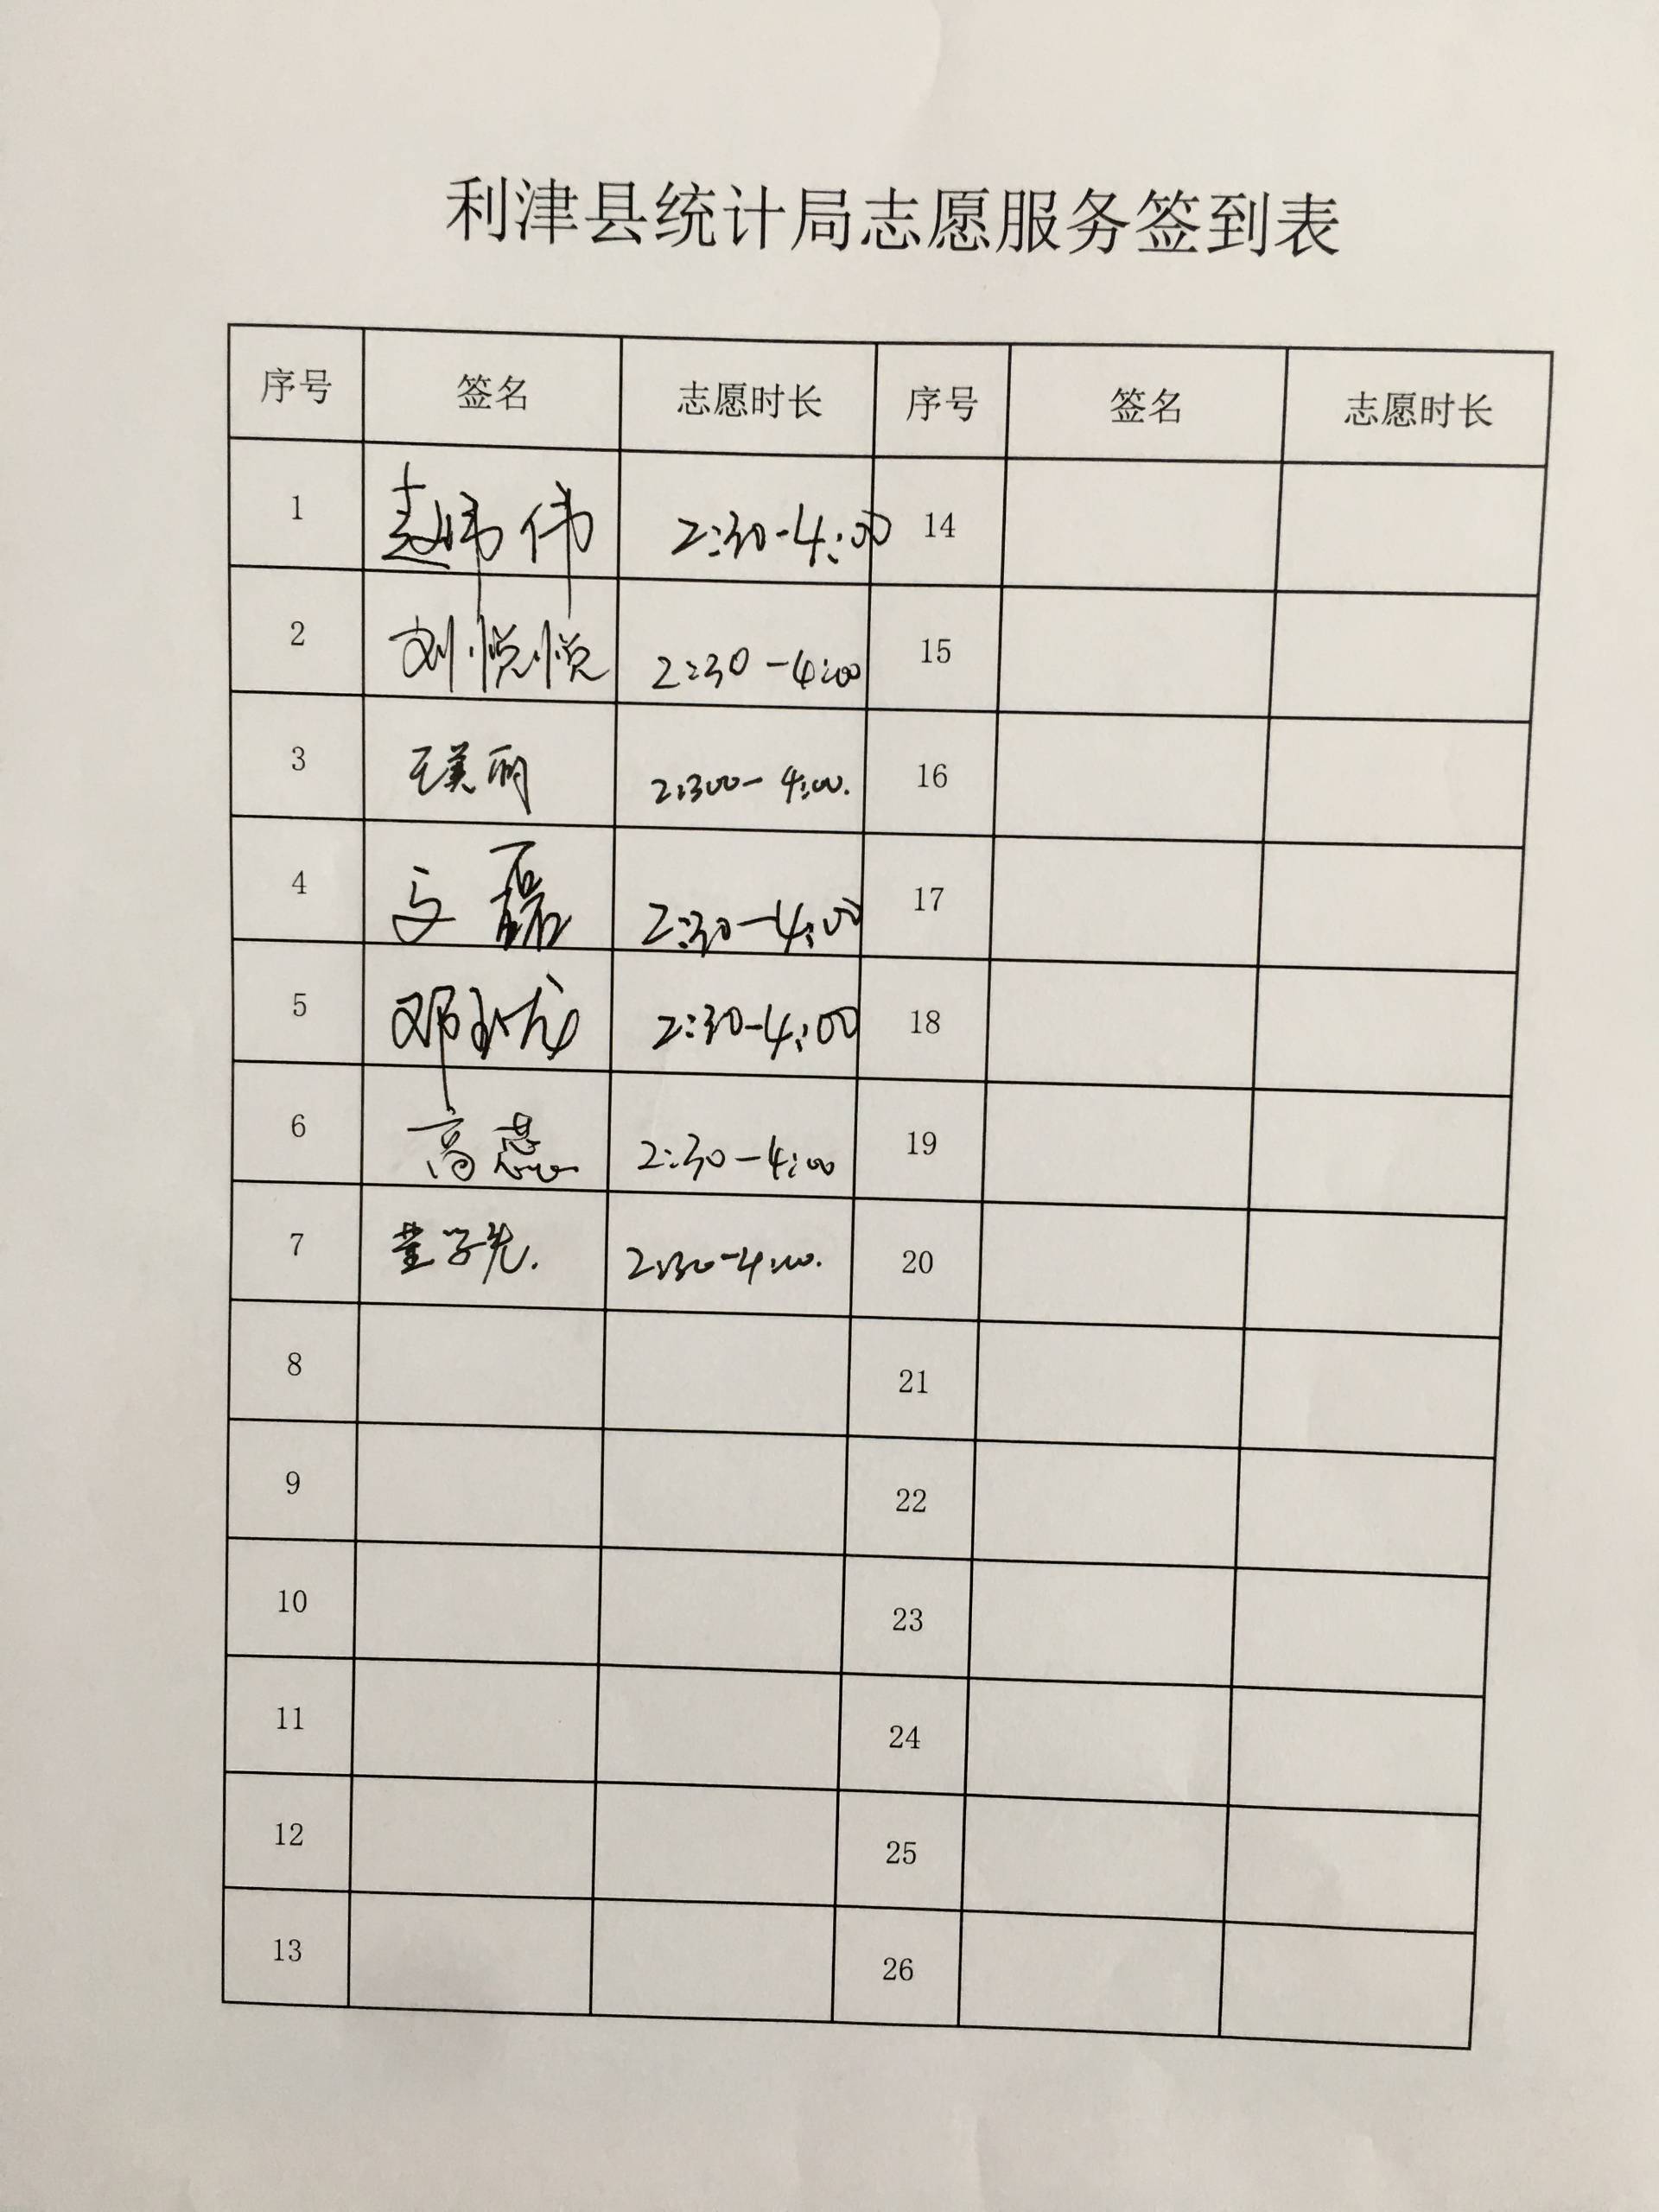 利津县统计局志愿服务签到表
序号 签名 志愿时长 序号 签名 志愿时长
1 赵炜伟 2:30-4:00 14
2 刘悦悦 2:30-4:00 15
3 王美丽 2:300-4:00. 16
4 磊 2:30-4:00 17
5 邓永龙 2:30-4:00 18
6 高蕊 2:30-4:00 19
7 董学先. 2:30-4:00. 20
8 21
9 22
10 23
11 24
12 25
13 26